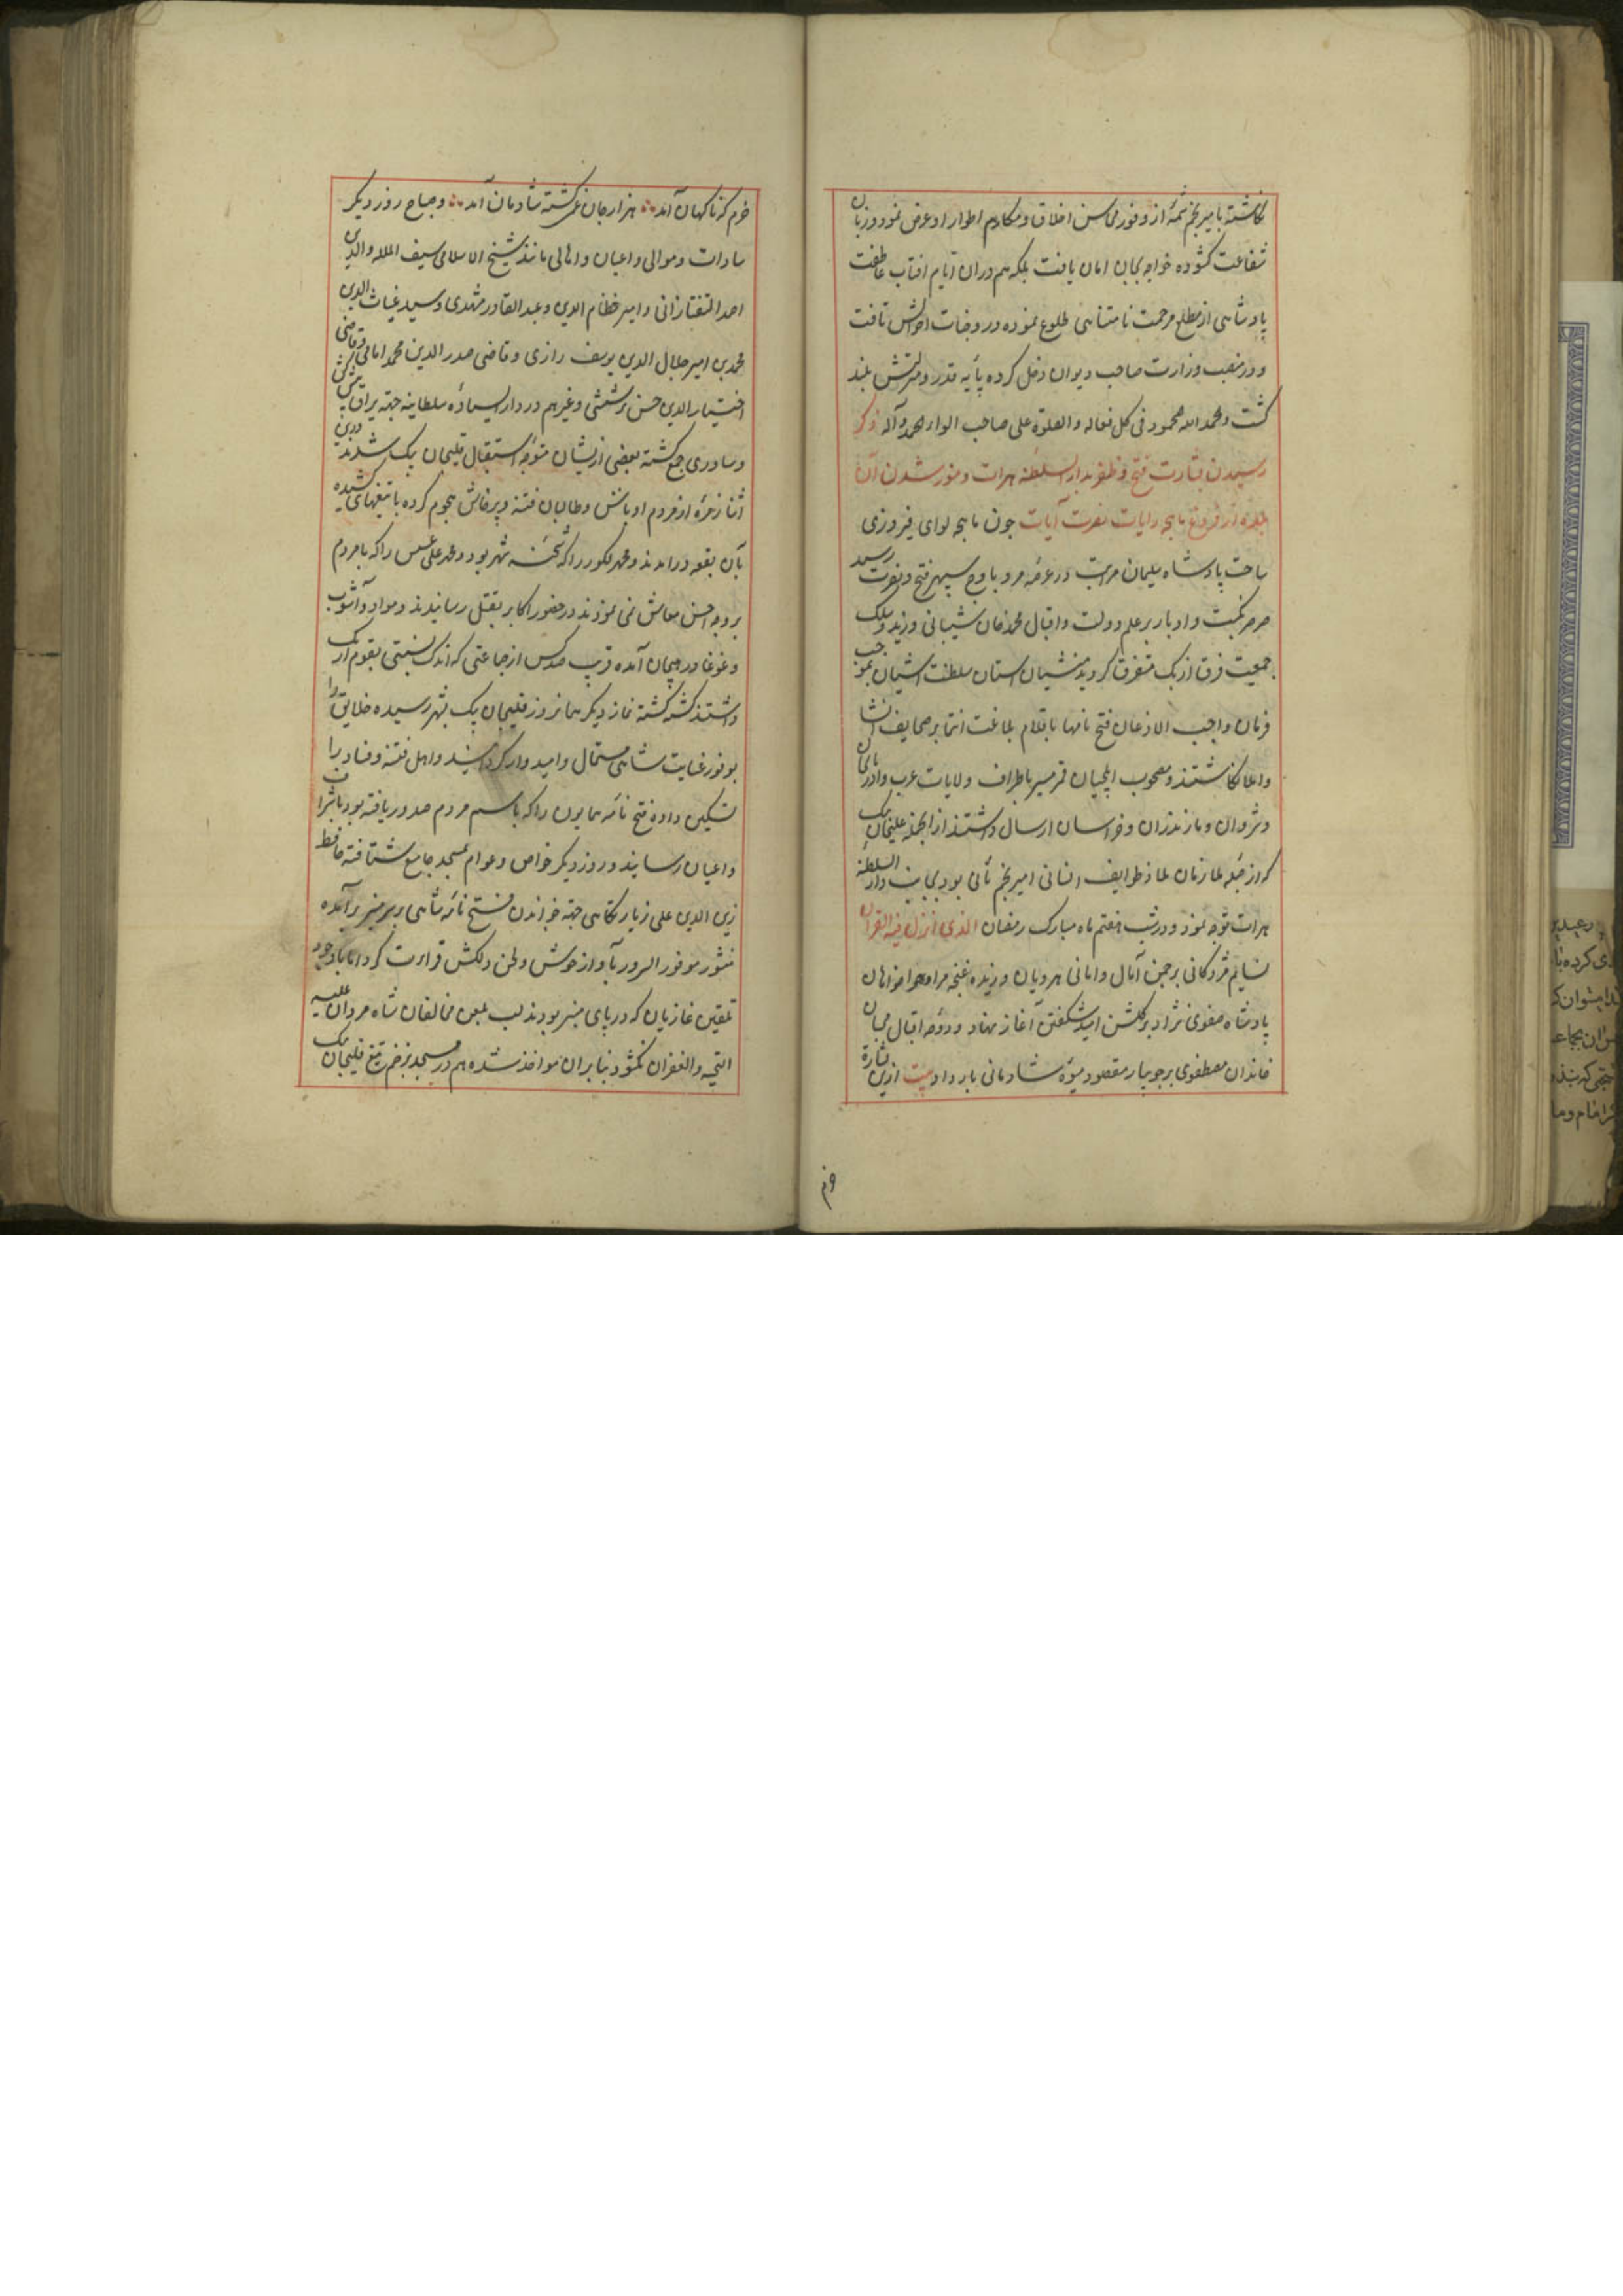 نکاشته با میر نجم شمهٔ از وفور محاسن اخلاق و مکارم اطوار او عرض نمود و زبان
شفاعت کشوده خواجه بجان امان یافت بلکه هم دران ایام افتاب عاطفت
پادشاهی از مطلع مرحمت نامتناهی طلوع نموده در وجنات احوالش تافت
و در منصب وزارت صاحب دیوان دخل کرده پایه قدر و منزلتش بلند
کشت والحمد الله المحمود فی کل فعاله والصلوة علی صاحب الوار الحمد وآله ذکر
رسیدن بشارت فتح و ظفر بدار السلطنه هرات و منور شدن آن
بلده از فروغ ماهچه رایات نصرت آیات چون ماهچه لوای فیروزی
ساحت پادشاه سلیمان مرتبت در عرصه مرو باوج سپهر فتح و نصرت رسید
صرصر نکبت و ادبار بر علم دولت و اقبال محمد خان شیبانی وزید و سلک
جمعیت فرق ازبک متفرق کردید منشیان استان سلطنت اشیان بموجب
فرمان واجب الاذعان فتح نامها باقلام بلاغت انتما بر صحایف انشا
و املا نکاشتند و مصحوب ایلچیان قمر مسیر باطراف ولایات عرب و اذربایجان
و شروان و مازندران و خراسان ارسال داشتند از انجمله قلیجان بک
که از جمله ملازمان ملاذ طوایف انسانی امیر نجم ثانی بود بجانب دار السلطنه
هرات توجه نمود و در شب هفتم ماه مبارک رمضان الذی انزل فیه القران
نسایم مژدکانی بر چمن آمال و امانی هرویان وزیده غنچه مراد هواخواهان
پادشاه صفوی نژاد بر کلشن امید شکفتن آغاز نهاد و دوحه اقبال محبان
خاندان مصطفوی بر جویبار مقصود میوه شادمانی بار داد بیت ازین بشارة
خرم که ناکهان آمد هزار جان غمکشته شادمان آمد و صباح روز دیکر
سادات و موالی و اعیان و اهالی مانند شیخ الاسلامی سیف المله والدین
احمد التفتازانی و امیر نظام الدین و عبد القادر مشهدی و سید غیاث الدین
محمد بن امیر جلال الدین یوسف رازی و قاضی صدر الدین محمد امامی و قاضی
اختیار الدین حسن تربتی و غیرهم در دار السیادهٔ سلطانیه جهته یراق پیشکش
و ساوری جمع کشته بعضی ازیشان متوجه استقبال قلیجان بک شدند درین
اثنا زمرهٔ از مردم اوباش و طالبان فتنه و پرخاش هجوم کرده با تیغهای کشیده
بآن بقعه درامدند و محمد لکوررا که شحنه شهر بود و محمد علی عسس را که با مردم
بر وجه احسن معاش نمی نمودند در حضور اکابر بقتل رسانیدند و مواد آشوب
و غوغا در هیجان آمده قریب صد کس از جماعتی که اندک نسبتی بقوم ازبک
داشتند کشته کشته نماز دیکر همانروز قلیجان بک بشهر رسیده خلایق را
بوفور عنایت شاهی مستمال و امیدوار کردانید و اهل فتنه و فساد را
تسکین داده فتح نامه همایون را که باسم مردم صدور یافته بود باشراف
و اعیان رسانید و روز دیکر خواص و عوام بمسجد جامع شتافته حافظ
زین الدین علی زیارتکاهی جهته خواندن فتح نامه شاهی بر سر منبر برآمده
منشور موفور السرور بآواز خوش و لحن دلکش قراءت کرد اما با وجود
تلقین غازیان که در پای منبر بودند لب بلعن مخالفان شاه مردان علیه
التحیه والغفران نکشود بنابران مواخذ شده هم در مسجد بزخم تیغ قلیجان بک